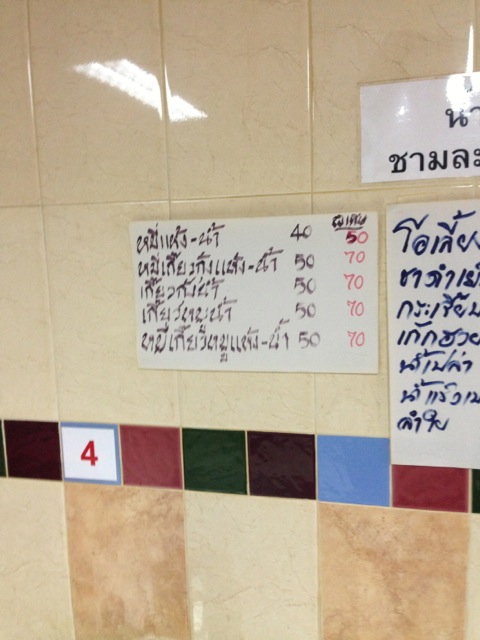 พิเศษ
หมี่แห้ง-น้ำ 40 50
หมี่เกี๊ยวกุ้งแห้ง-น้ำ 50 70
เกี๊ยวกุ้งน้ำ 50 70
เกี๊ยวหมูน้ำ 50 70
หมี่เกี๊ยวหมูแห้ง-น้ำ 50 70
4
น้ำ
ชามละ
โอเลี้ยง
ชาดำเย็น
กระเจี๊ยบ
เก๊กฮวย
น้ำเปล่า
น้ำแข็งเปล่า
ลำไย